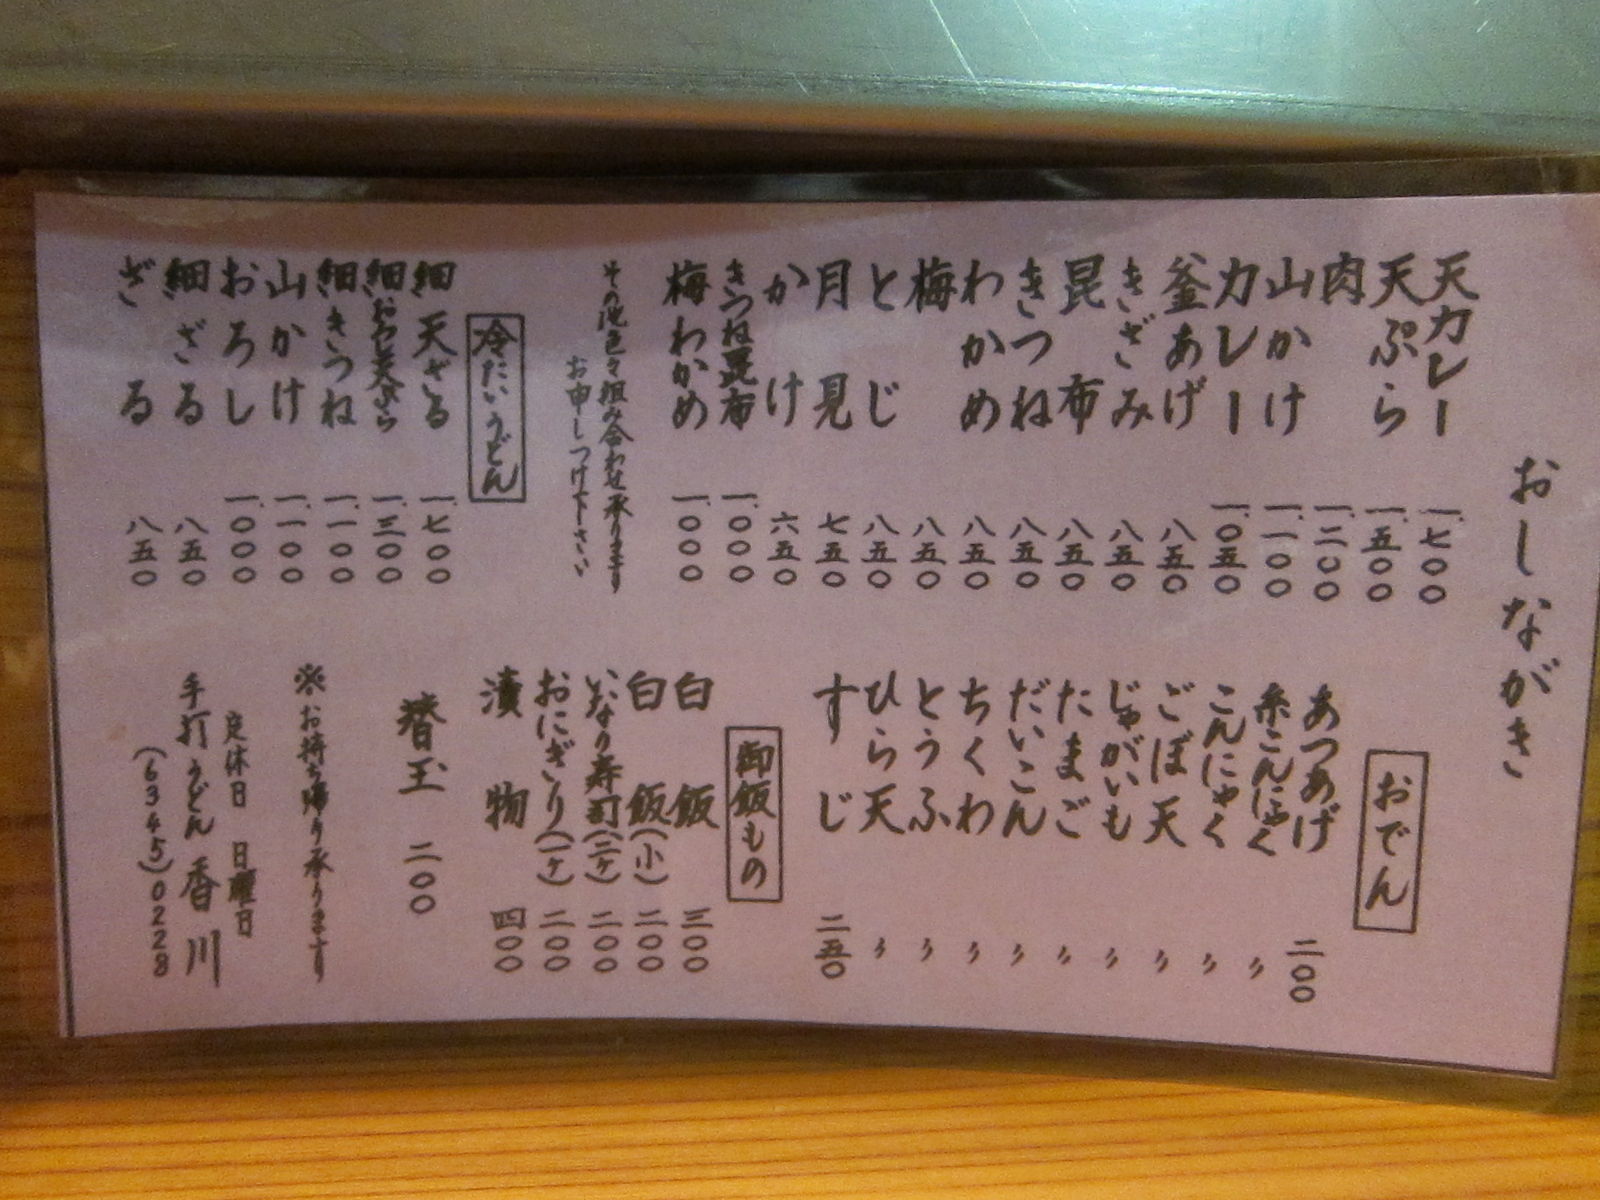 おしながき
天カレー 一、七〇〇
天ぷら 一、五〇〇
肉 一、二〇〇
山かけ 一、一〇〇
カレー 一、〇五〇
釜あげ 八五〇
きざみ 八五〇
昆布 八五〇
きつね 八五〇
わかめ 八五〇
梅 八五〇
とじ 八五〇
月見 七五〇
かけ 六五〇
きつね昆布 一、〇〇〇
梅わかめ 一、〇〇〇
その他色々組み合わせ承ります
お申しつけ下さい
冷たいうどん
細天ざる 一、七〇〇
細おろし天ぷら 一、三〇〇
細きつね 一、一〇〇
山かけ 一、一〇〇
おろし 一、〇〇〇
細ざる 八五〇
ざる 八五〇
おでん
あつあげ 二〇〇
糸こんにゃく 〃
こんにゃく 〃
ごぼ天 〃
じゃがいも 〃
たまご 〃
だいこん 〃
ちくわ 〃
とうふ 〃
ひら天 〃
すじ 二五〇
御飯もの
白飯 三〇〇
白飯(小) 二〇〇
いなり寿司(二ヶ) 二〇〇
おにぎり(一ヶ) 二〇〇
漬物 四〇〇
替玉 二〇〇
※お持ち帰り承ります
定休日 日曜日
手打うどん 香川
(6345)0228